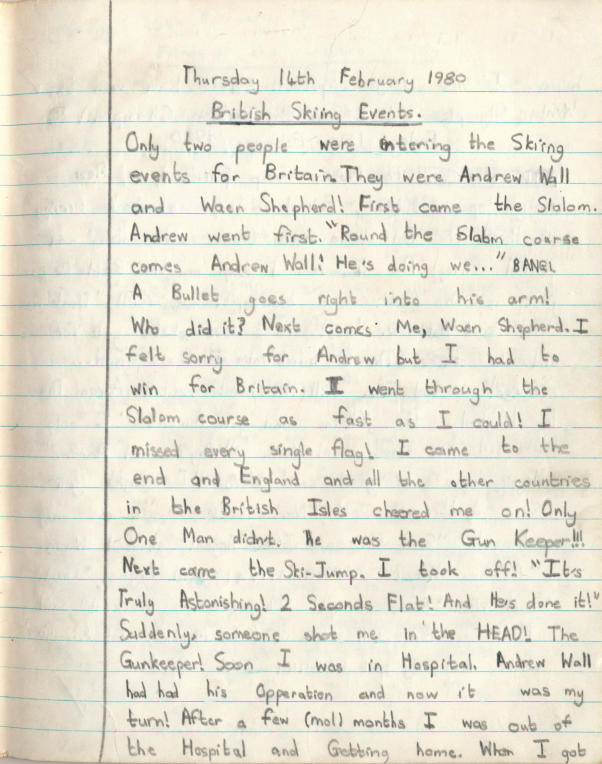 Thursday 14th February 1980
British Skiing Events.
Only two people were entering the Skiing
events for Britain. They were Andrew Wall
and Waen Shepherd! First came the Slalom.
Andrew went first. "Round the Slalom course
comes Andrew Wall! He's doing we..." BANG!
A Bullet goes right into his arm!
Who did it? Next comes Me, Waen Shepherd. I
felt sorry for Andrew but I had to
win for Britain. I went through the
Slalom course as fast as I could! I
missed every single flag! I came to the
end and England and all the other countries
in the British Isles cheered me on! Only
One Man didn't. he was the Gun Keeper!!!
Next came the Ski-Jump. I took off! "It's
Truly Astonishing! 2 Seconds Flat! And He's done it!"
Suddenly, someone shot me in the HEAD! The
Gunkeeper! Soon I was in Hospital. Andrew Wall
had had his Opperation and now it was my
turn! After a few (mol) months I was out of
the Hospital and Getting home. When I got